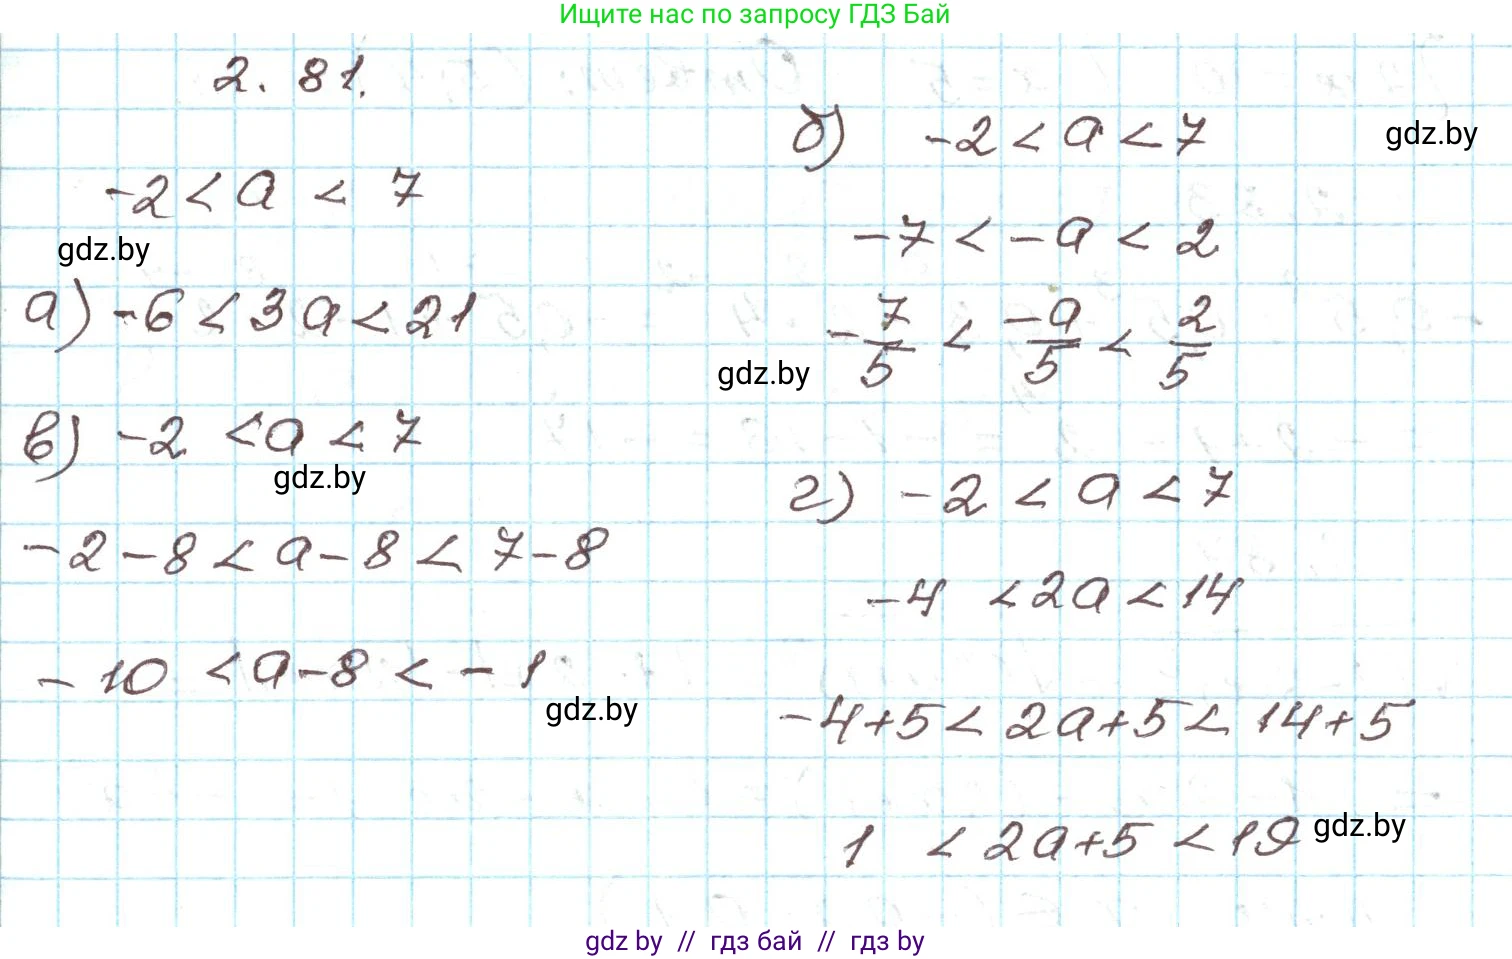 Ищите нас по запросу ГДЗ Бай
2. 81.
-2 < a < 7
gdz.by
а) -6 < 3a < 21
в) -2 < a < 7
gdz.by
-2 - 8 < a - 8 < 7 - 8
-10 < a - 8 < -1
gdz.by
б) -2 < a < 7
gdz.by
-7 < -a < 2
-7/5 < -a/5 < 2/5
gdz.by
г) -2 < a < 7
-4 < 2a < 14
-4+5 < 2a+5 < 14+5
1 < 2a+5 < 19
gdz.by
gdz by // гдз бай // гдз by